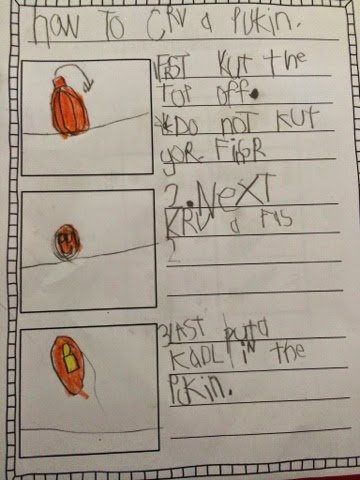 how To CRV a PUKin.
FIST KUT the
TOP OFF.
*DO NOT KUT
YOR FIGR
2. NeXT
KRV a FAS
2
3 LAST PUT a
KADL IN the
PUKIN.